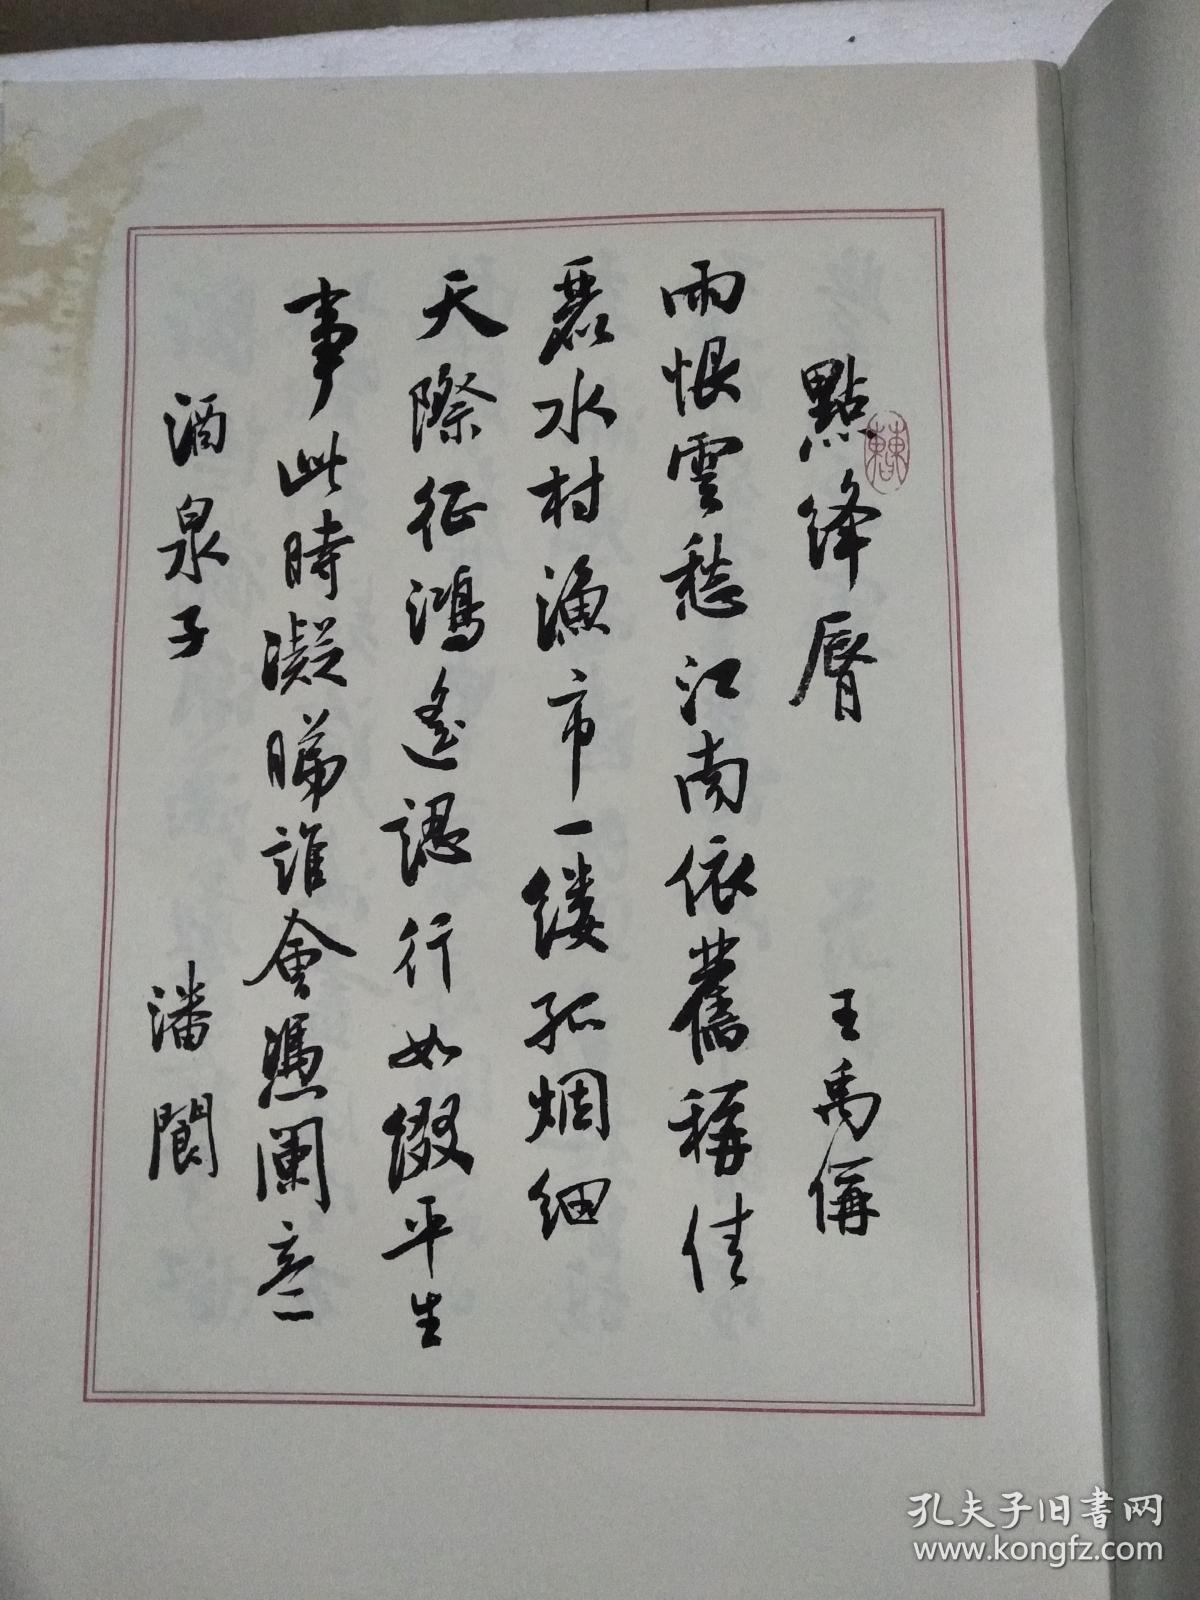 點絳唇 王禹偁
雨恨雲愁江南依舊稱佳
麗水村漁市一缕孤烟细
天際征鴻遙認行如缀平生
事此時凝睇誰會憑闌意
酒泉子 潘閬
孔夫子旧書网
www.kongfz.com